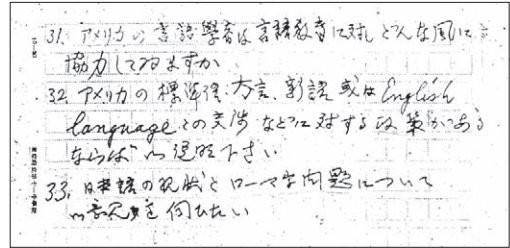 31. アメリカの言語學者は言語教育に対しどんな風に
協力して居ますか
32. アメリカの標準語、方言、新語或は English
language との交渉などに対する政策がある
ならば御説明下さい
33. 日本語の現状とローマ字問題について
御意見を伺ひたい